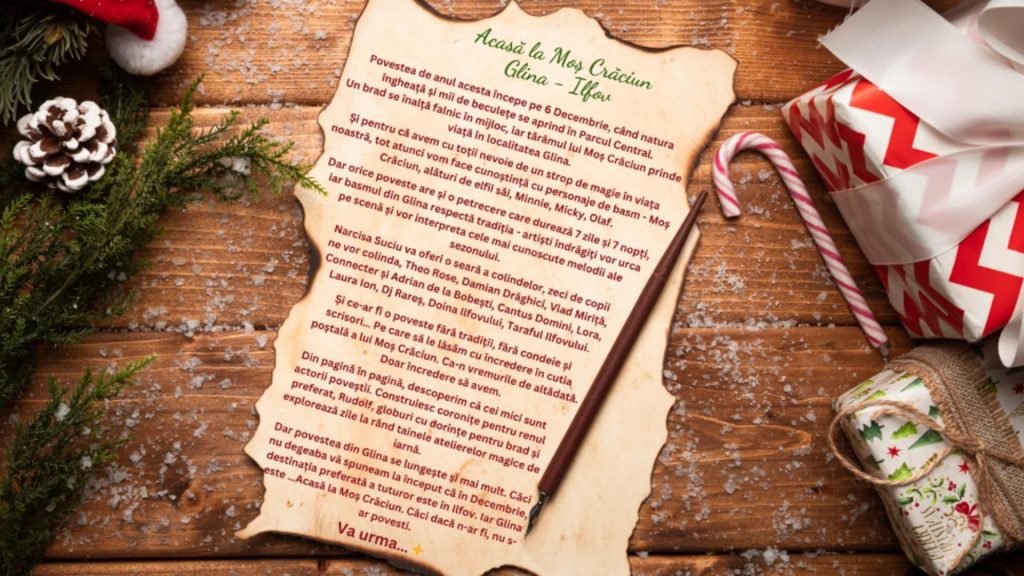 Acasă la Moș Crăciun
Glina - Ilfov
Povestea de anul acesta începe pe 6 Decembrie, când natura
îngheață și mii de beculețe se aprind în Parcul Central.
Un brad se înalță falnic în mijloc, iar tărâmul lui Moș Crăciun prinde
viață în localitatea Glina.
Și pentru că avem cu toții nevoie de un strop de magie în viața
noastră, tot atunci vom face cunoștință cu personaje de basm - Moș
Crăciun, alături de elfii săi, Minnie, Micky, Olaf.
Dar orice poveste are și o petrecere care durează 7 zile și 7 nopți,
iar basmul din Glina respectă tradiția - artiști îndrăgiți vor urca
pe scenă și vor interpreta cele mai cunoscute melodii ale
sezonului.
Narcisa Suciu va oferi o seară a colindelor, zeci de copii
ne vor colinda, Theo Rose, Damian Drăghici, Vlad Miriță,
Connecter și Adrian de la Bobești, Cantus Domini, Lora,
Laura Ion, Dj Rareș, Doina Ilfovului, Taraful Ilfovului.
Și ce-ar fi o poveste fără tradiții, fără condeie și
scrisori... Pe care să le lăsăm cu încredere în cutia
poștală a lui Moș Crăciun. Ca-n vremurile de altădată.
Doar încredere să avem.
Din pagină în pagină, descoperim că cei mici sunt
actorii poveștii. Construiesc coronițe pentru renul
preferat, Rudolf, globuri cu dorințe pentru brad și
explorează zile la rând tainele atelierelor magice de
iarnă.
Dar povestea din Glina se lungește și mai mult. Căci
nu degeaba vă spuneam la început că în Decembrie,
destinația preferată a tuturor este în Ilfov. Iar Glina
este ...Acasă la Moș Crăciun. Căci dacă n-ar fi, nu s-
ar povesti.
Va urma...